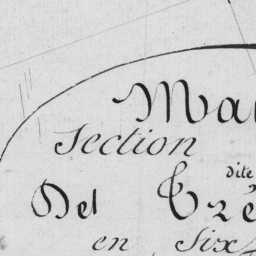 Ma
Section
dite
Del Tré
en Six